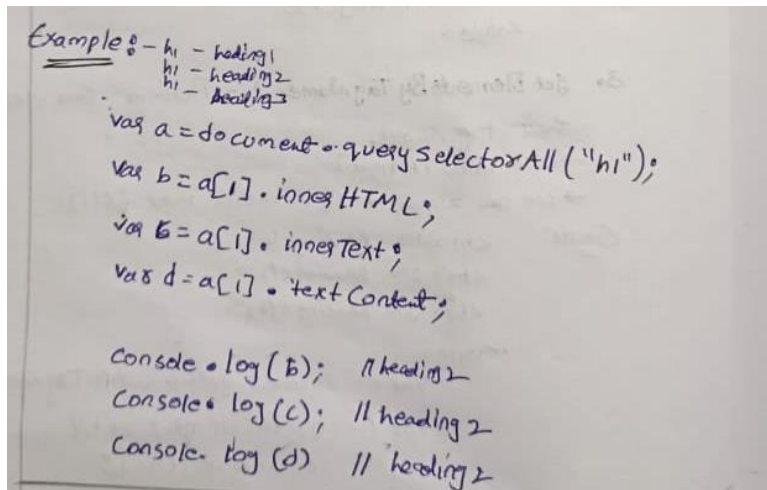 Example :- h1 - hading1
h1 - heading2
h1 - heading3
var a = document.querySelectorAll("h1");
var b = a[1].innerHTML;
var c = a[1].innerText;
var d = a[1].textContent;
console.log(b); // heading 2
console.log(c); // heading 2
console.log(d) // heading 2